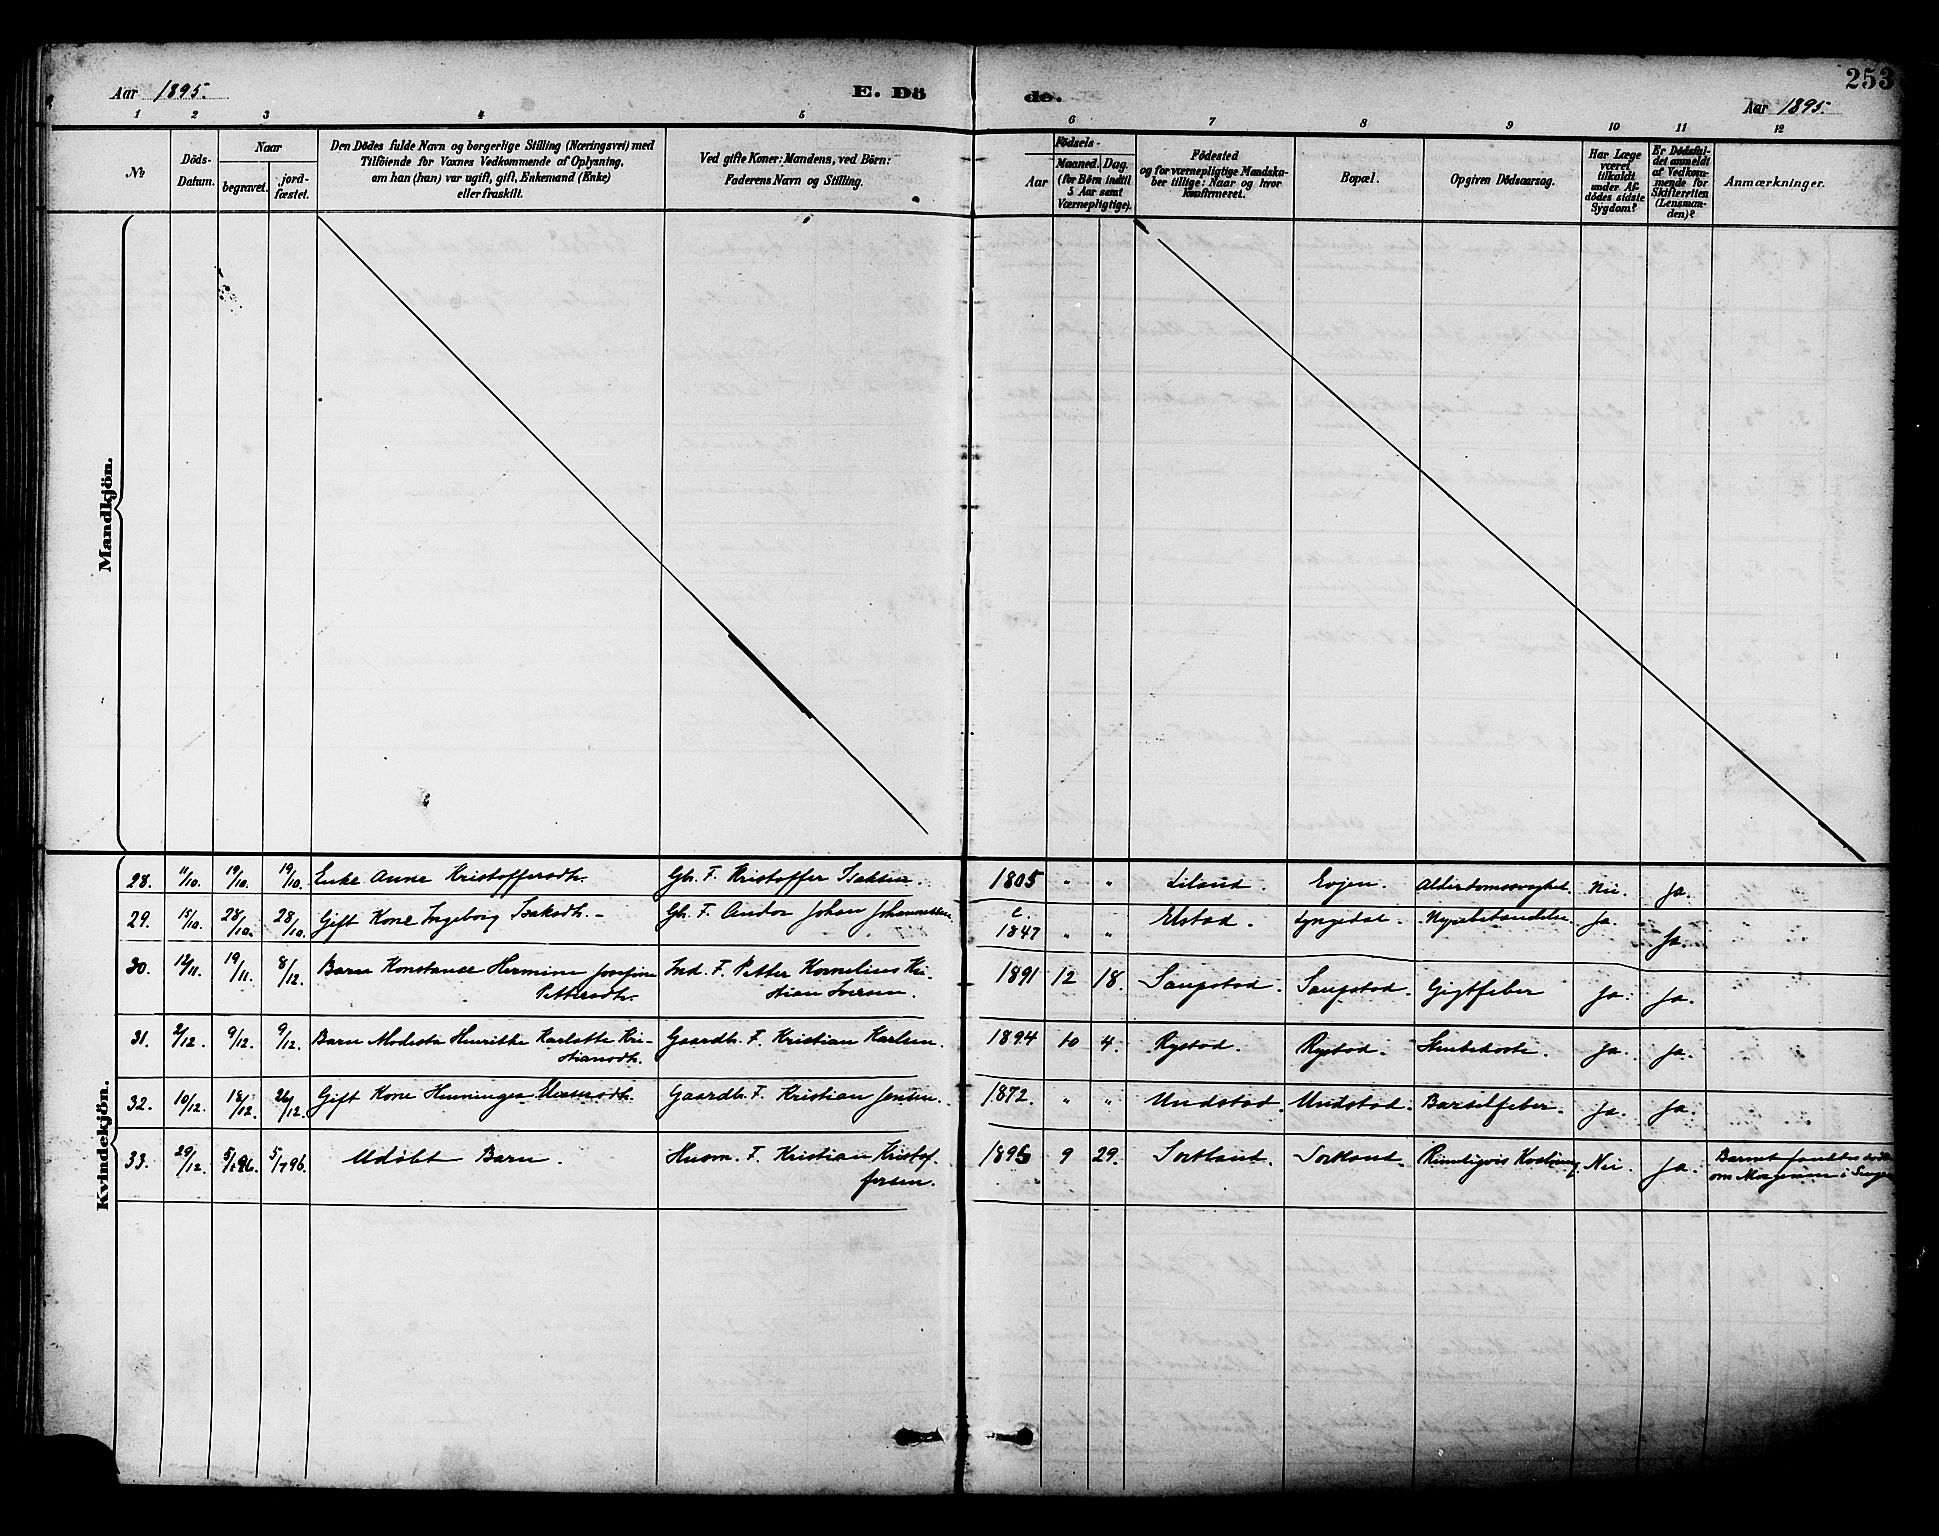 Aar 1895.
E. Dö
de.
253
Aar 1895.
1 2 3 4 5 6 7 8 9 10 11 12
No
Döds-Datum.
Naar
begravet.
jord-fæstet.
Den Dödes fulde Navn og borgerlige Stilling (Næringsvei) med
Tilföiende for Voxnes Vedkommende af Oplysning,
om han (hun) var ugift, gift, Enkemand (Enke)
eller fraskilt.
Ved gifte Koner: Mandens, ved Börn:
Faderens Navn og Stilling.
Födsels-
Aar
Maaned. Dag.
(for Börn indtil
5 Aar samt
Værnepligtige).
Födested
og for værnepligtige Mandska-
ber tillige: Naar og hvor
konfirmeret.
Bopæl.
Opgiven Dödsaarsag.
Har Læge
været
tilkaldt
under Af-
dödes sidste
Sygdom?
Er Dödsfal-
det anmeldt
af Vedkom-
mende for
Skifteretten
(Lensman-
den)?
Anmærkninger.
Mandkjön.
Kvindekjön.
28. 11/10. 19/10. 19/10. Enke Anne Kristoffersdh. Gb. F. Kristoffer Isaksen. 1805 " " Liland. Evjen. Alderdomssvaghet. Nei. Ja.
29. 15/10. 28/10. 28/10. Gift Kone Ingeborg Isaksdh. Gb. F. Andor Johan Johannessen c. 1847 " " Elstad. Lyngedal. Ja. Ja.
30. 12/11. 19/11. 8/12. Barn Konstanse Hermine Josefine
Pettersdh. Ind. F. Petter Kornelius Kri-
stian Iversen. 1891 12 18. Saupstad. Saupstad. Gigtfeber Ja. Ja.
31. 2/12. 9/12. 9/12. Barn Modesta Henrikke Karlotte Kri-
stiansdh. Gaardb. F. Kristian Karlsen. 1894 10 4. Rystad. Rystad. Ja. Ja.
32. 10/12. 18/12. 26/12. Gift Kone Henninges Gaardb. F. Kristian Jensen. 1872. " " Undstad. Undstad. Barselfeber. Ja. Ja.
33. 29/12. 5/1 96. 5/1 96. Udöbt Barn. Husm. F. Kristian Kristof-
fersen. 1895 9 29. Sortland. Sortland. Rimeligvis Nei. Ja. Barnet fandtes död
om Morgenen i Sengen